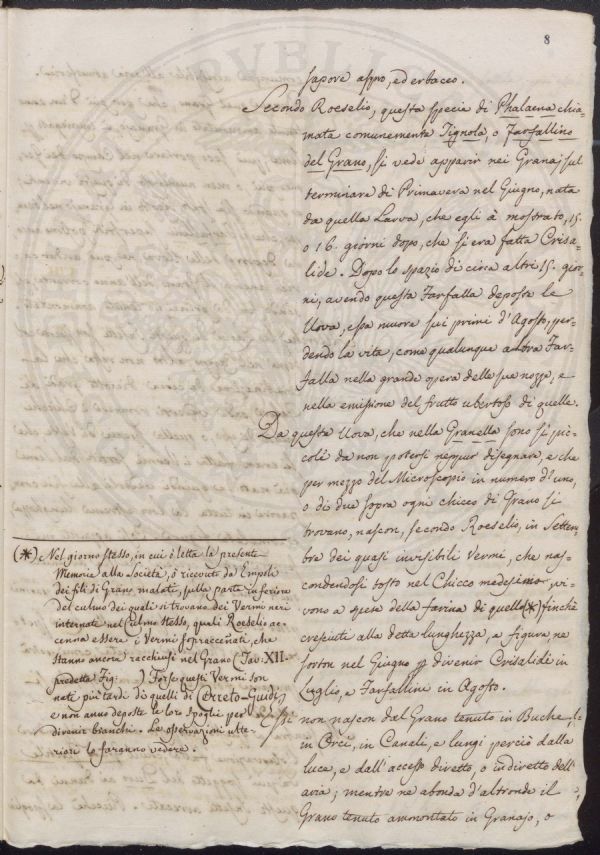 8
sapore aspro, ed erbaceo.
Secondo Roeselio, questa specie di Phalaena chia=
mata comunemente Tignola, o Farfallino
del Grano, si vede apparir nei Granaj sul
terminare di Primavera nel Giugno, nata
da quella Larva, che egli à mostrato, 15.
o 16. giorni dopo, che si era fatta Crisa=
lide. Dopo lo spazio di circa altri 15. gior=
ni, avendo questa Farfalla deposte le
Uova, essa muore sui primi d'Agosto, per=
dendo la vita, come qualunque altra Far=
falla nella grande opera delle sue nozze, e
nella emissione del frutto ubertoso di quelle.
Da queste Uova, che nella Granella sono sì pic=
coli da non potersi neppur disegnare, e che
per mezzo del Microscopio in numero d'uno,
o di due sopra ogni chicco di Grano si
trovano, nascon, secondo Roeselio, in Settem=
bre dei quasi invisibili Vermi, che nas=
condendosi tosto nel Chicco medesimo, vi=
vono a spese della farina di quello (*) finchè
cresciute alla detta lunghezza, e figura ne
sorton nel Giugno p divenir Crisalidi in
Luglio, e Farfallini in Agosto.
non nascon dal Grano tenuto in Buche,
in Orci, in Canali, e lungi perciò dalla
luce, e dall'accesso diretto, o indiretto dell'
aria; mentre ne abonda d'altronde il
Grano tenuto ammontato in Granajo, o
(*) Nel giorno stesso, in cui è letta la presente
Memoria alla Società, ò ricevuto da Empoli
dei fili di Grano malati, sulla parte inferiore
del culmo dei quali si trovano dei Vermi neri
internati nel Culmo stesso, quali Roeselio ac=
cenna essere i Vermi sopraccennati, che
stanno ancora racchiusi nel Grano (Tav. XII.
predetta Fig: ) Forse questi Vermi son
nati più tardi di quelli di Cerreto-Guidi,
e non anno deposte le loro spoglie per
divenir bianchi. Le osservazioni ulte=
riori lo faranno vedere.